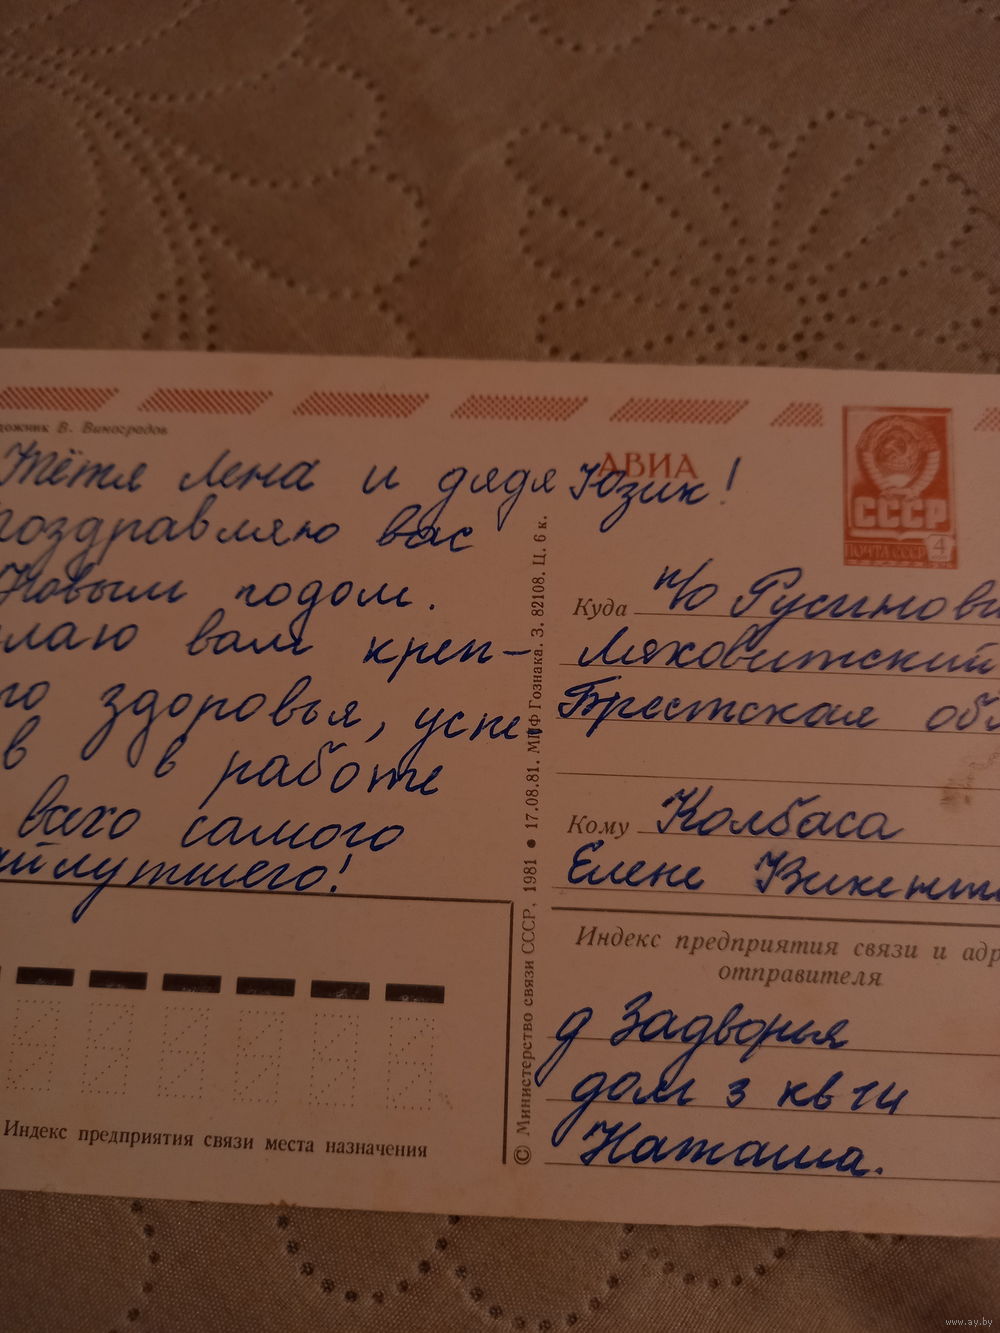 дожник В. Виноградов
АВИА
СССР
ПОЧТА СССР 4
Тётя Лена и дядя Юзик!
поздравляю вас
Новым годом.
лаю вам креп-
го здоровья, успе
в в работе
всего самого
айлутшего!
Индекс предприятия связи места назначения
© Министерство связи СССР, 1981 • 17.08.81. МПФ Гознака. З. 82108. Ц. 6 к.
Куда п/о Русинови
Ляховитский
Брестская обл
Кому Колбаса
Елене Викенти
Индекс предприятия связи и адр
отправителя
д Задворья
дом 3 кв 14
Наташа.
www.ay.by